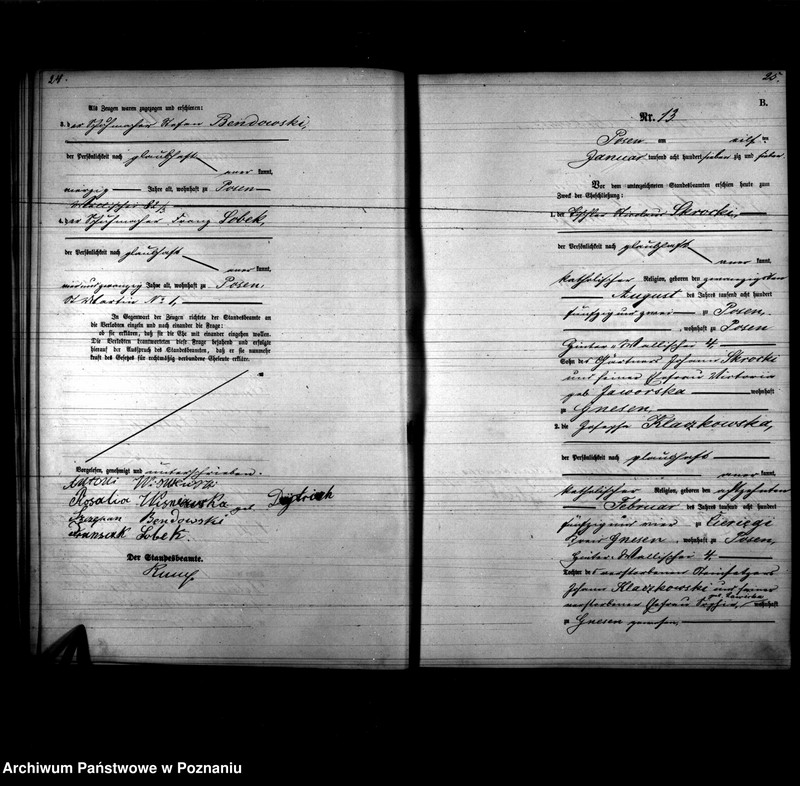 24.
Als Zeugen waren zugezogen und erschienen:
3. der Schuhmacher Stefan Bendowski,
der Persönlichkeit nach glaubhaft
aner kannt,
vierzig Jahre alt, wohnhaft zu Posen
Wallischei
4. der Schuhmacher Franz Lobek,
der Persönlichkeit nach glaubhaft
aner kannt,
zwanzig Jahre alt, wohnhaft zu Posen,
St Martin No
In Gegenwart der Zeugen richtete der Standesbeamte an
die Verlobten einzeln und nach einander die Frage:
ob sie erklären, daß sie die Ehe mit einander eingehen wollen.
Die Verlobten beantworteten diese Frage bejahend und erfolgte
hierauf der Ausspruch des Standesbeamten, daß er sie nunmehr
kraft des Gesetzes für rechtmäßig verbundene Eheleute erkläre.
Vorgelesen, genehmigt und unterschrieben.
Rosalia geb Dijtrich
Szczepan Bendowski
Franciszek Lobek.
Der Standesbeamte.
25.
B.
Nr. 13
Posen am eilf ten
Januar tausend acht hundert sieben zig und sieben
Vor dem unterzeichneten Standesbeamten erschien heute zum
Zweck der Eheschließung:
1. der Tischler Skrocki,
der Persönlichkeit nach glaubhaft
aner kannt,
katholischer Religion, geboren den zwanzigsten
August des Jahres tausend acht hundert
fünfzig und zwei zu Posen,
, wohnhaft zu Posen
Hinter-Wallischei 4.
Sohn des Gärtners Johann Skrocki
und seiner Ehefrau Victoria
geb. Jaworska wohnhaft
zu Gnesen
2. die Josepha Klaczkowska,
der Persönlichkeit nach glaubhaft
aner kannt,
katholischer Religion, geboren den achtzehnten
Februar des Jahres tausend acht hundert
fünfzig und vier zu
Kreis Gnesen, wohnhaft zu Posen,
Hinter-Wallischei 4.
Tochter des verstorbenen Steinsetzers
Johann Klaczkowski und seiner
verstorbenen Ehefrau wohnhaft
zu Gnesen gewesen,
Archiwum Państwowe w Poznaniu